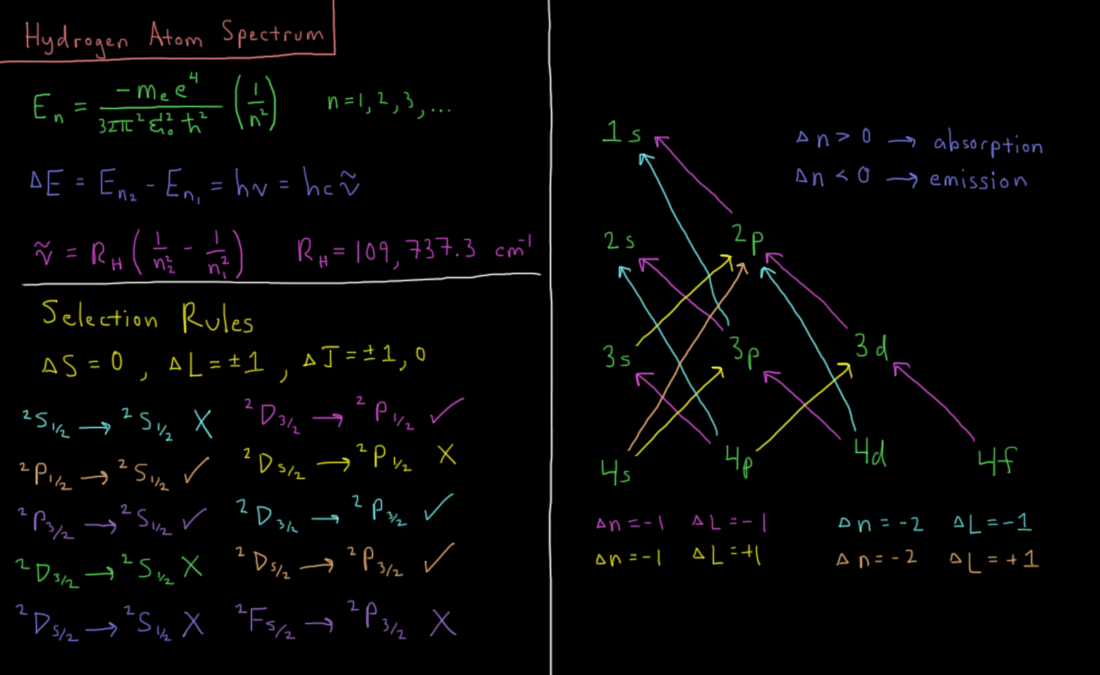 Hydrogen Atom Spectrum
Eₙ = -mₑe⁴ / 32π²ε₀²ħ² (1/n²) n=1,2,3,...
ΔE = Eₙ₂ - Eₙ₁ = hν = hcṽ
ṽ = R_H (1/n₂² - 1/n₁²) R_H = 109,737.3 cm⁻¹
Selection Rules
ΔS = 0 , ΔL = ±1 , ΔJ = ±1, 0
²S₁/₂ → ²S₁/₂ X
²P₁/₂ → ²S₁/₂ ✓
²P₃/₂ → ²S₁/₂ ✓
²D₃/₂ → ²S₁/₂ X
²D₅/₂ → ²S₁/₂ X
²D₃/₂ → ²P₁/₂ ✓
²D₅/₂ → ²P₁/₂ X
²D₃/₂ → ²P₃/₂ ✓
²D₅/₂ → ²P₃/₂ ✓
²F₅/₂ → ²P₃/₂ X
Δn > 0 → absorption
Δn < 0 → emission
1s
2s 2p
3s 3p 3d
4s 4p 4d 4f
Δn = -1 ΔL = -1
Δn = -1 ΔL = +1
Δn = -2 ΔL = -1
Δn = -2 ΔL = +1